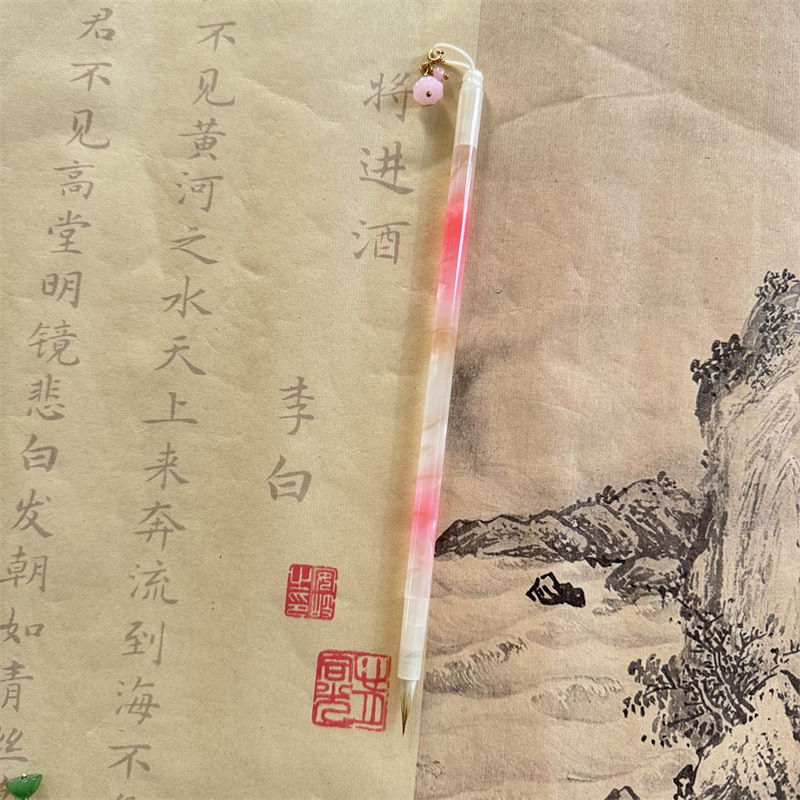 将进酒
李白
不见黄河之水天上来奔流到海不
君不见高堂明镜悲白发朝如青丝
安岐之印